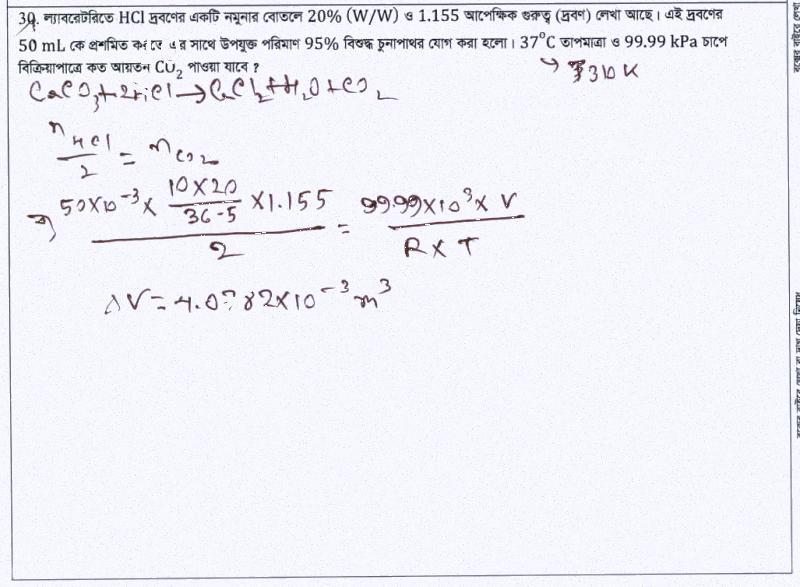 30. ল্যাবরেটরিতে HCl দ্রবণের একটি নমুনার বোতলে 20% (W/W) ও 1.155 আপেক্ষিক গুরুত্ব (দ্রবণ) লেখা আছে। এই দ্রবণের
50 mL কে প্রশমিত করতে এর সাথে উপযুক্ত পরিমাণ 95% বিশুদ্ধ চুনাপাথর যোগ করা হলো। 37°C তাপমাত্রা ও 99.99 kPa চাপে
বিক্রিয়াপাত্রে কত আয়তন CO₂ পাওয়া যাবে ?
→ 310 K
CaCO₃+2HCl→CaCl₂+H₂O+CO₂
n HCl / 2 = n CO₂
⇒ (50×10⁻³ × (10×20 / 36.5) × 1.155) / 2 = (99.99×10³× V) / (R × T)
V = 4.0782×10⁻³ m³